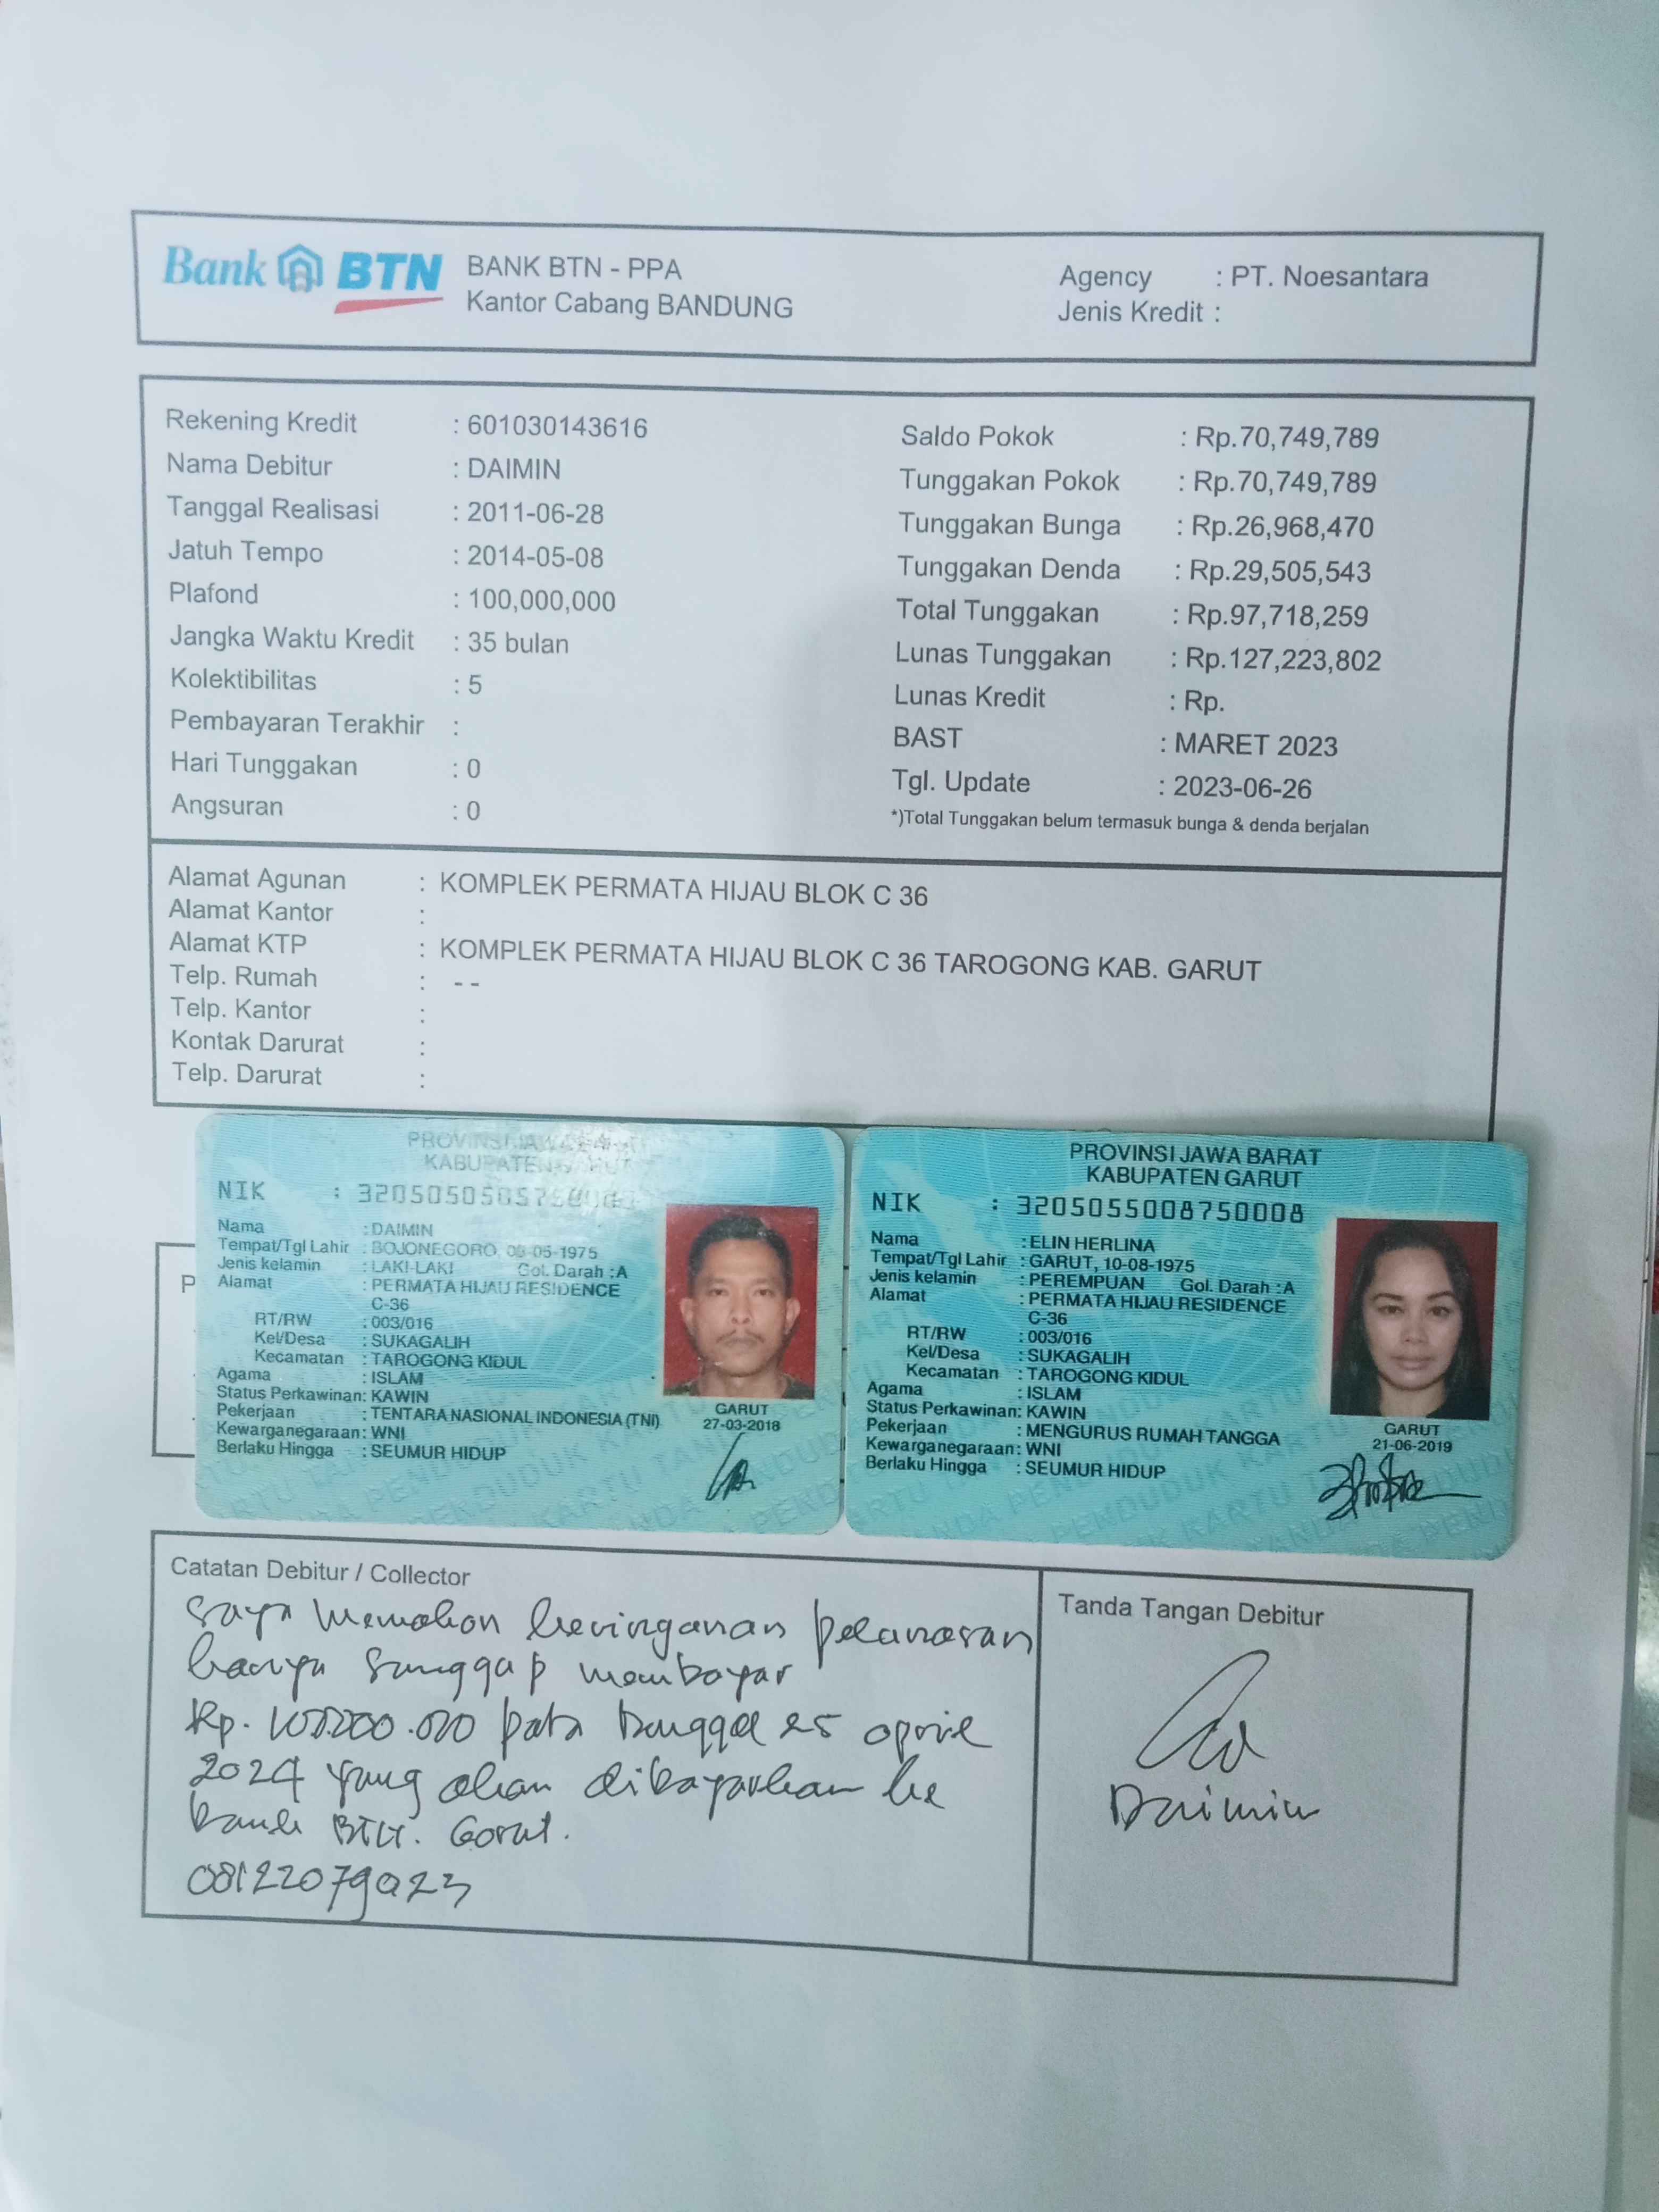 Bank BTN
BANK BTN - PPA
Kantor Cabang BANDUNG
Agency : PT. Noesantara
Jenis Kredit :
Rekening Kredit : 601030143616
Nama Debitur : DAIMIN
Tanggal Realisasi : 2011-06-28
Jatuh Tempo : 2014-05-08
Plafond : 100,000,000
Jangka Waktu Kredit : 35 bulan
Kolektibilitas : 5
Pembayaran Terakhir :
Hari Tunggakan : 0
Angsuran : 0
Saldo Pokok : Rp.70,749,789
Tunggakan Pokok : Rp.70,749,789
Tunggakan Bunga : Rp.26,968,470
Tunggakan Denda : Rp.29,505,543
Total Tunggakan : Rp.97,718,259
Lunas Tunggakan : Rp.127,223,802
Lunas Kredit : Rp.
BAST : MARET 2023
Tgl. Update : 2023-06-26
*)Total Tunggakan belum termasuk bunga & denda berjalan
Alamat Agunan : KOMPLEK PERMATA HIJAU BLOK C 36
Alamat Kantor :
Alamat KTP : KOMPLEK PERMATA HIJAU BLOK C 36 TAROGONG KAB. GARUT
Telp. Rumah : --
Telp. Kantor :
Kontak Darurat :
Telp. Darurat :
P
PROVINSI JAWA
KABUPATEN GARUT
NIK :
Nama : DAIMIN
Tempat/Tgl Lahir : BOJONEGORO, -05-1975
Jenis kelamin : LAKI-LAKI Gol. Darah : A
Alamat : PERMATA HIJAU RESIDENCE
C-36
RT/RW : 003/016
Kel/Desa : SUKAGALIH
Kecamatan : TAROGONG KIDUL
Agama : ISLAM
Status Perkawinan: KAWIN
Pekerjaan : TENTARA NASIONAL INDONESIA (TNI)
Kewarganegaraan: WNI
Berlaku Hingga : SEUMUR HIDUP
GARUT
27-03-2018
PROVINSI JAWA BARAT
KABUPATEN GARUT
NIK : 3205055008750008
Nama : ELIN HERLINA
Tempat/Tgl Lahir : GARUT, 10-08-1975
Jenis kelamin : PEREMPUAN Gol. Darah : A
Alamat : PERMATA HIJAU RESIDENCE
C-36
RT/RW : 003/016
Kel/Desa : SUKAGALIH
Kecamatan : TAROGONG KIDUL
Agama : ISLAM
Status Perkawinan: KAWIN
Pekerjaan : MENGURUS RUMAH TANGGA
Kewarganegaraan: WNI
Berlaku Hingga : SEUMUR HIDUP
GARUT
21-06-2019
Catatan Debitur / Collector
saya memohon keringanan pelunasan
hanya sanggup membayar
Rp. pada tanggal 25 april
2024 yang akan dibayarkan ke
bank BTN. Garut.
Tanda Tangan Debitur
Daimin